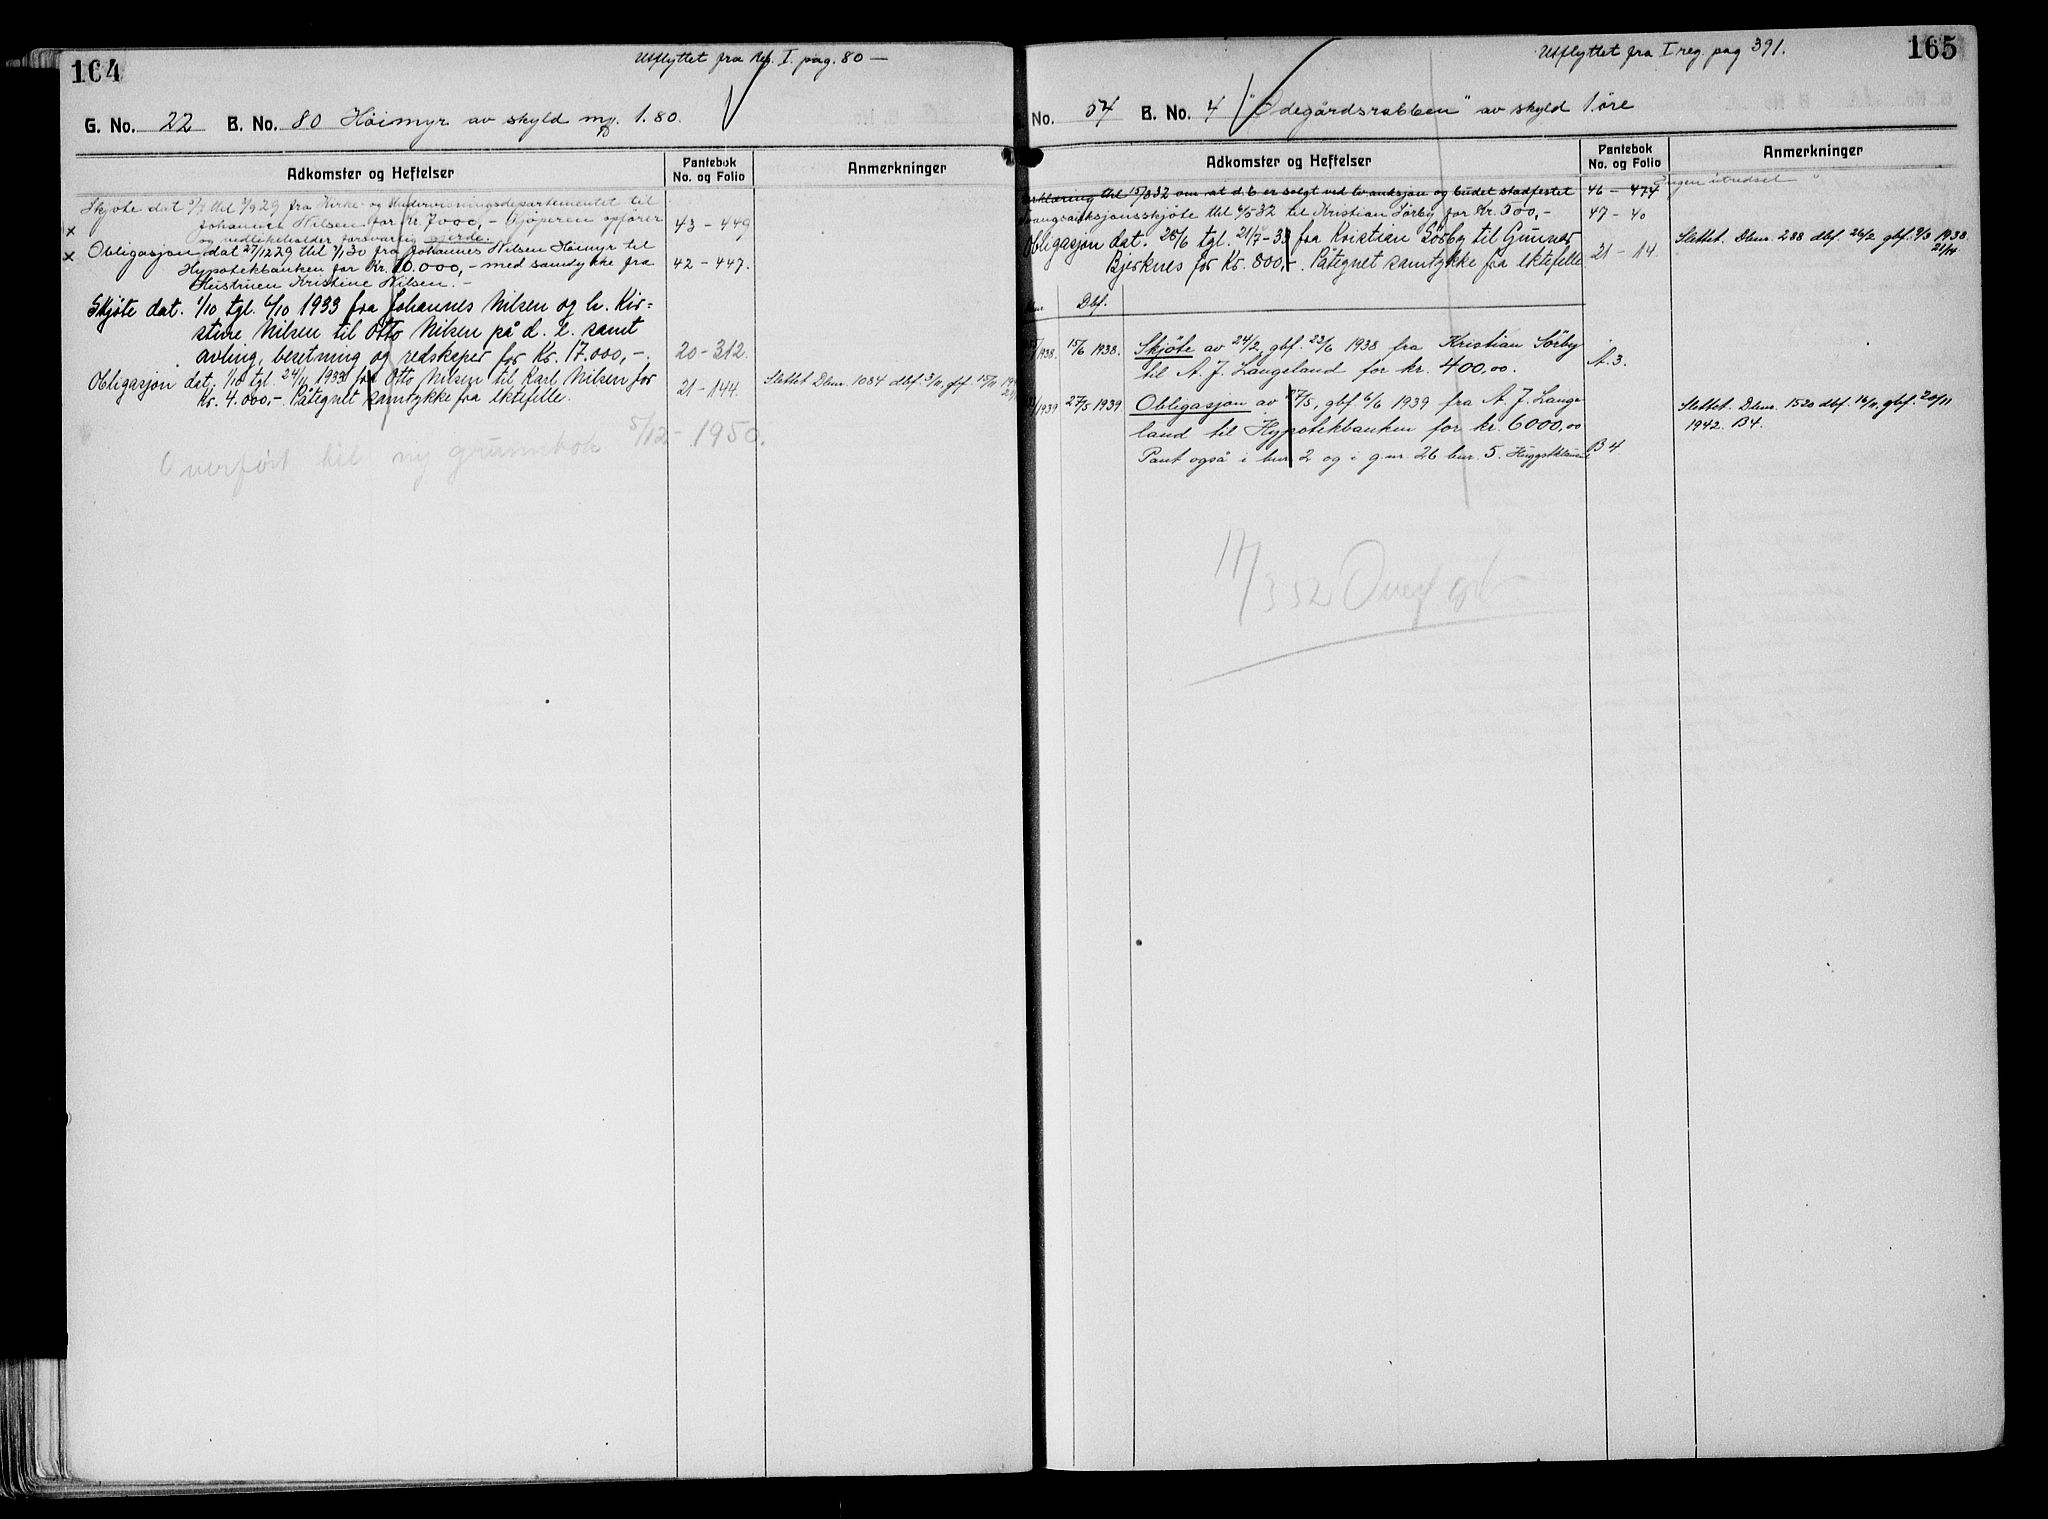 164
Utflyttet fra reg. I. pag. 80 —
G. No. 22 B. No. 80 Höimyr av skyld 1.80.
Adkomster og Heftelser
Pantebok
No. og Folio
Anmerkninger
Skjøte dat ttl 29 fra Kirke- og Undervisningsdepartementet til
Johannes Nilsen for Kr. 7000,- Kjøperen opfører
og vedlikeholder forsvarlig gjerde.
43 - 449
x Obligasjon dat 27/12 29 ttl 7/1 30 fra Johannes Nilsen Höimyr til
Hypotekbanken for Kr. 10.000,- med samtykke fra
Hustruen Kristine Nilsen. -
42 - 447.
Skjøte dat. 1/10 tgl. 6/10 1933 fra Johannes Nilsen og h. Kir=
stine Nilsen til Otto Nilsen på d. e. samt
avling, besetning og redskaper for Kr. 17.000,-.
20 - 312.
Obligasjon dat. 1/10 tgl. 24/11 1933 fra Otto Nilsen til Karl Nilsen for
Kr. 4.000,-. Påtegnet samtykke fra ektefelle.
21 - 144.
Slettet Dbnr. 1084 dbf. 3/11, gbf. 15/11
Overført til ny grunnbok 5/12 - 1950.
165
Utflyttet fra I reg. pag 391.
No. 54 B. No. 4 "Ødegårdsrabben" av skyld 1 öre
Adkomster og Heftelser
Pantebok
No. og Folio
Anmerkninger
ttl 15/3 32 om at d. b. er solgt ved tv. auksjon og budet stadfestet
46 - 474
Ingen utredsel "
Tvangsauksjonsskjøte ttl 6/5 32 til Kristian Sörby for Kr. 500,-
47 - 40
Obligasjon dat. 28/6 tgl. 21/7 - 33 fra Kristian Sörby til Gunnar
Bjerknes for Kr. 800,-. Påtegnet samtykke fra ektefelle
21 - 14.
Slettet. Dbnr. 288 dbf. 26/2 gbf. 9/3 1938.
21/14
Dbf.
1938. 15/6 1938. Skjøte av 24/2, gbf. 23/6 1938 fra Kristian Sörby
til A. J. Langeland for kr. 400,00.
A. 3.
1939 27/5 1939. Obligasjon av 27/5, gbf. 6/6 1939 fra A. J. Lange-
land til Hypotekbanken for kr. 6000,00
Pant også i bnr. 2 og i gnr 26 bnr. 5.
B 4
Slettet. Dbnr. 1520 dbf. 16/11, gbf. 20/11
1942. B4.
17/3 52